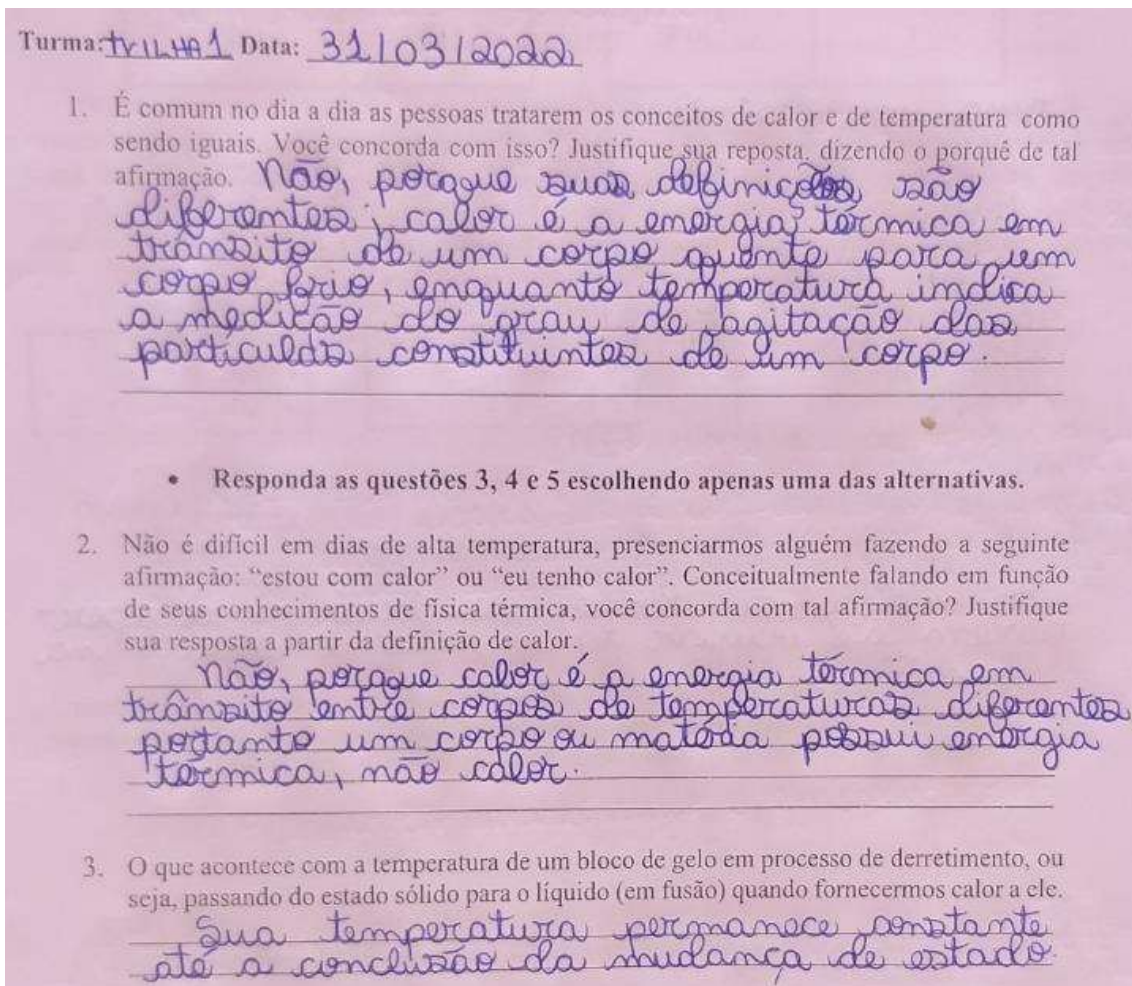 Turma: TRILHA 1 Data: 31/03/2022
1. É comum no dia a dia as pessoas tratarem os conceitos de calor e de temperatura como
sendo iguais. Você concorda com isso? Justifique sua reposta, dizendo o porquê de tal
afirmação. Não, porque suas definições são
diferentes; calor é a energia térmica em
trânsito de um corpo quente para um
corpo frio, enquanto temperatura indica
a medição do grau de agitação das
partículas constituintes de um corpo.
• Responda as questões 3, 4 e 5 escolhendo apenas uma das alternativas.
2. Não é difícil em dias de alta temperatura, presenciarmos alguém fazendo a seguinte
afirmação: “estou com calor” ou “eu tenho calor”. Conceitualmente falando em função
de seus conhecimentos de física térmica, você concorda com tal afirmação? Justifique
sua resposta a partir da definição de calor.
Não, porque calor é a energia térmica em
trânsito entre corpos de temperaturas diferentes
portanto um corpo ou matéria possui energia
térmica, não calor.
3. O que acontece com a temperatura de um bloco de gelo em processo de derretimento, ou
seja, passando do estado sólido para o líquido (em fusão) quando fornecermos calor a ele.
Sua temperatura permanece constante
até a conclusão da mudança de estado.